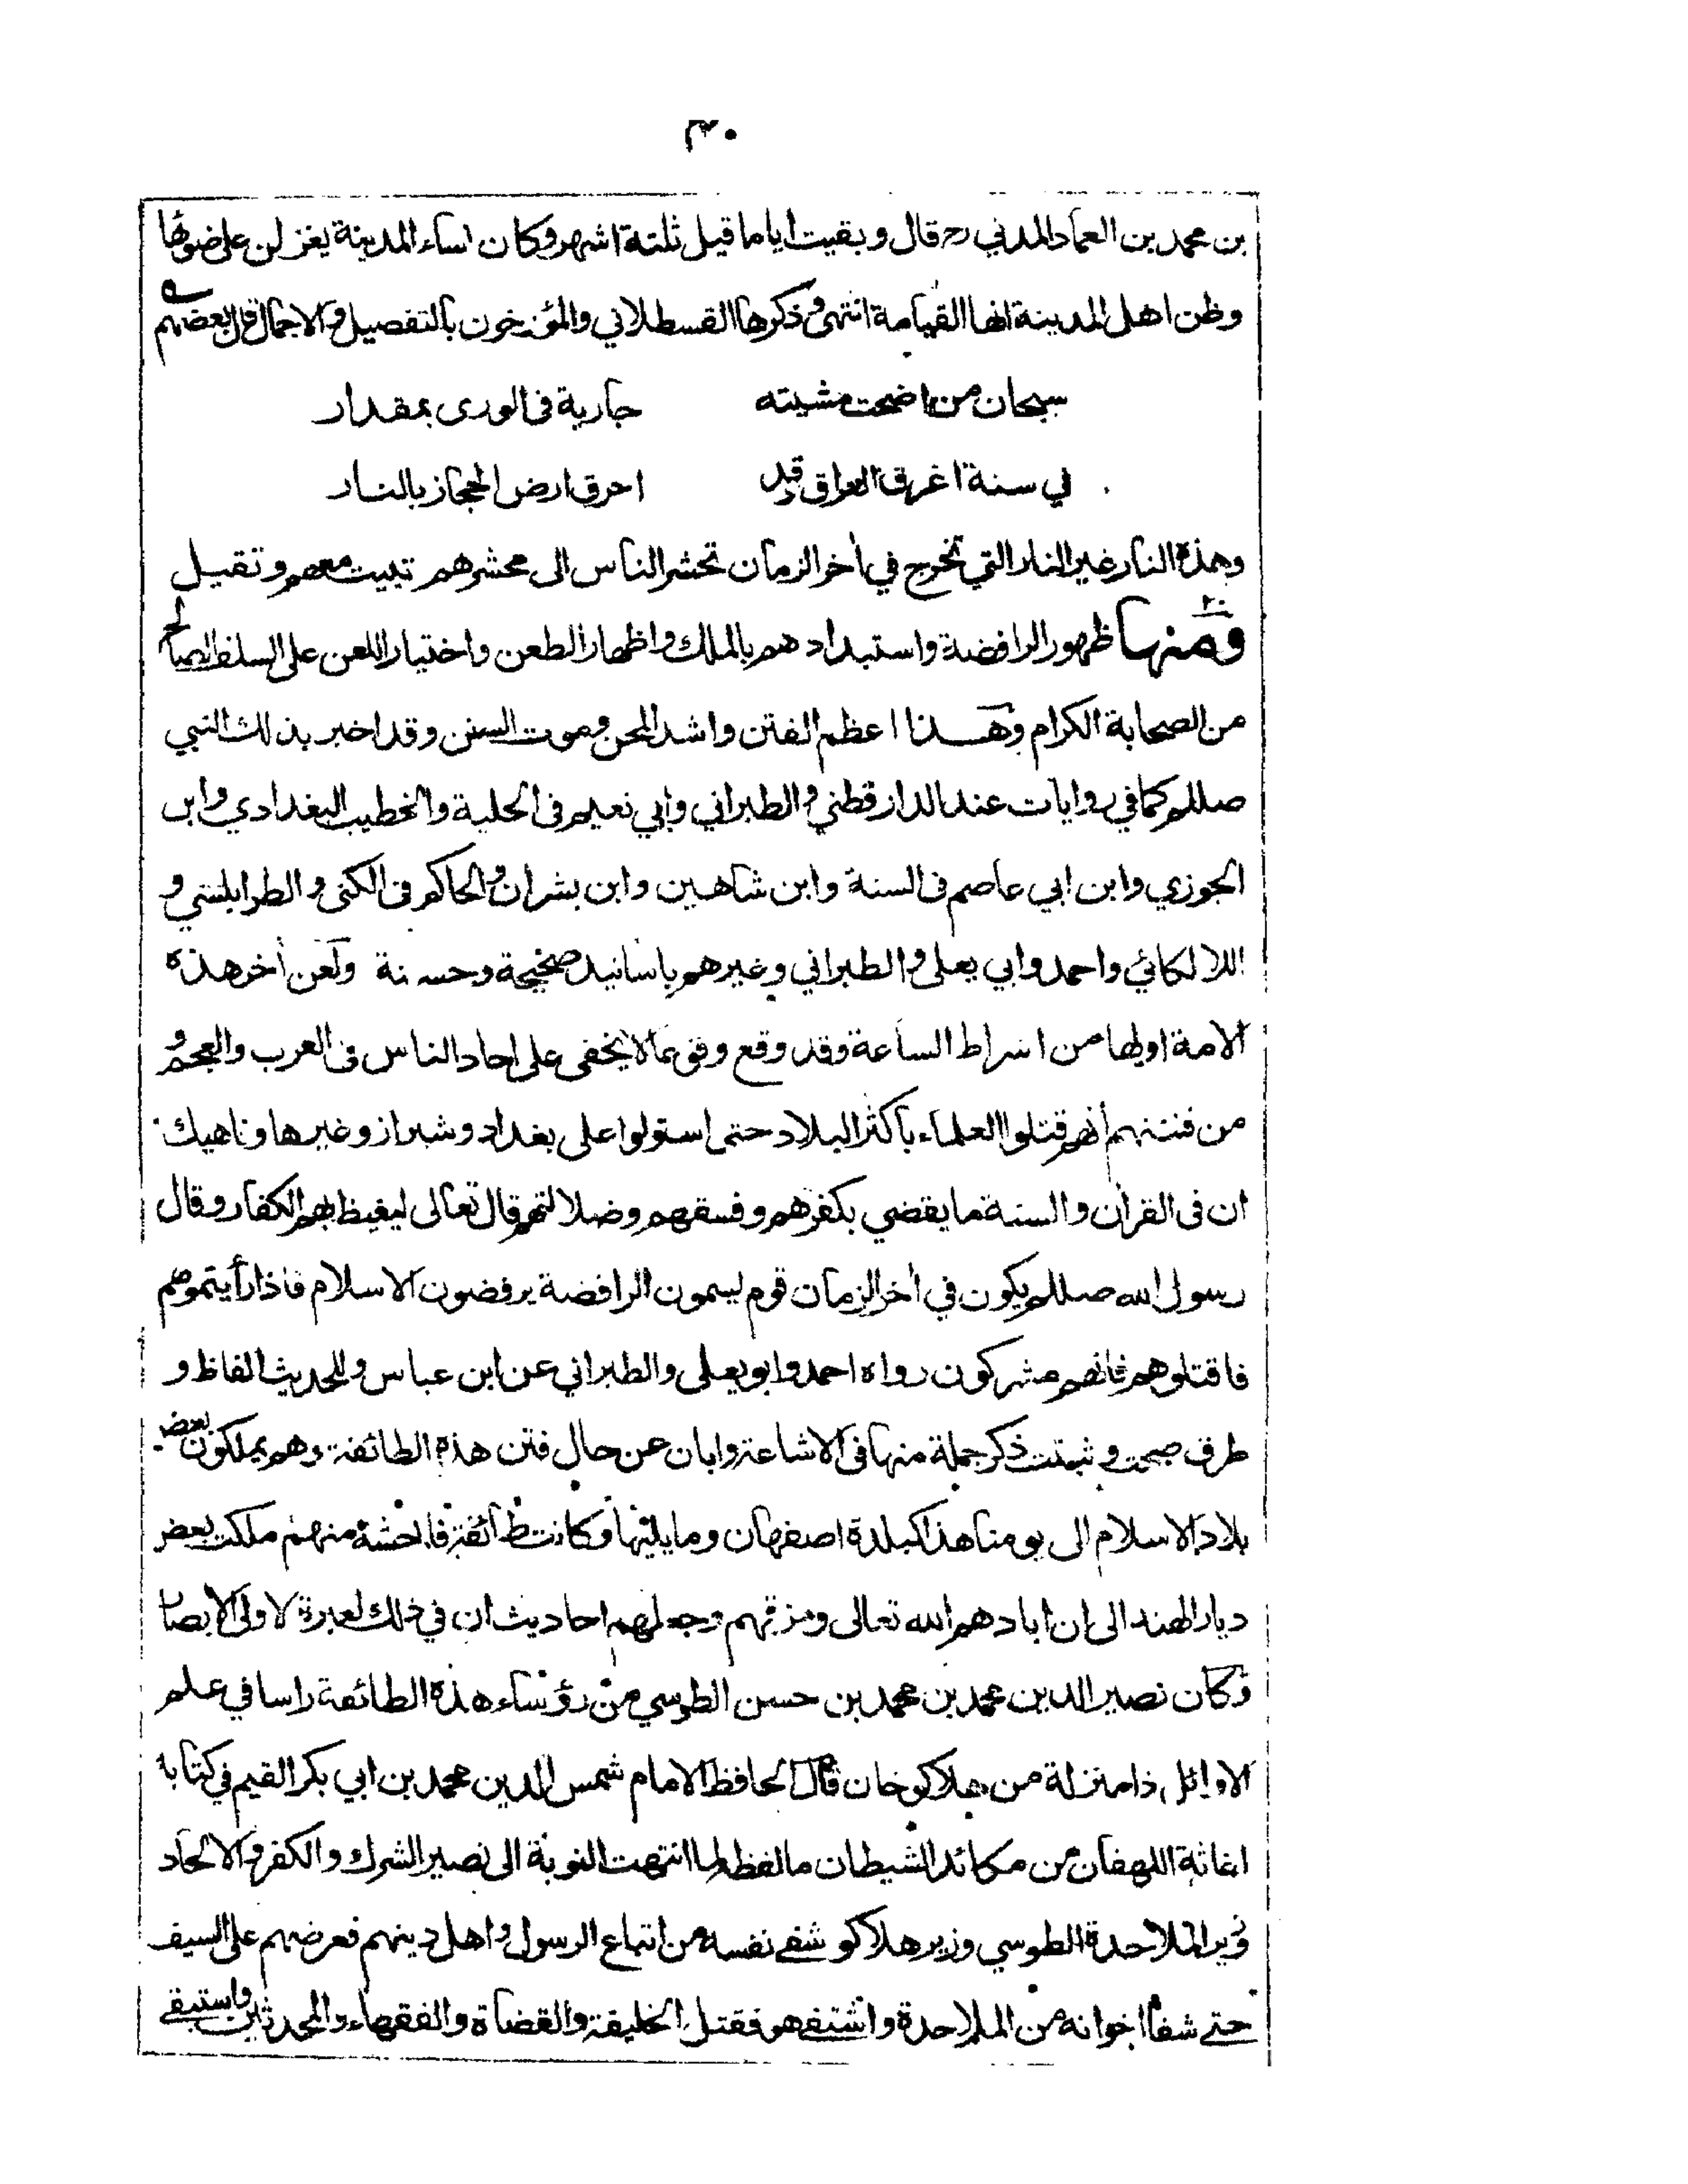 ۴۰
بن محمد بن العماد المدني رح قال وبقيت اياما قيل ثلثة اشهر وكان نساء المدينة يغزلن على ضوئها
وظن اهل المدينة انها القيامة انتهى وذكرها القسطلاني والمؤرخون بالتفصيل والاجمال قال بعضهم
سبحان من اضحت مشيته جارية فى الورى بمقدار
في سنة اغرق العراق وقد احرق ارض الحجاز بالنار
وهذه النار غير النار التي تخرج في أخر الزمان تحشر الناس الى محشرهم تبيت معهم وتقيل
ومنها ظهور الرافضة واستبدادهم بالملك واظهار الطعن واختيار اللعن على السلف الصالح
من الصحابة الكرام وهذا اعظم الفتن واشد المحن وموت السنن وقد اخبر بذلك النبي
صللم كما في روايات عند الدارقطني والطبراني وابي نعيم فى الحلية والخطيب البغدادي وابن
الجوزي وابن ابي عاصم فى السنة وابن شاهين وابن بشران والحاكم فى الكنى والطرابلسي و
اللالكائي واحمد وابي يعلى والطبراني وغيرهم باسانيد صحيحة وحسنة ولعن أخر هذه
الامة اولها من اشراط الساعة وقد وقع وقوعا لا يخفى على احاد الناس فى العرب والعجم و
من فتنتهم أنهم قتلوا العلماء بأكثر البلاد حتى استولوا على بغداد وشيراز وغيرها وناهيك
ان فى القرأن والسنة ما يقضي بكفرهم وفسقهم وضلالتهم قال تعالى ليغيظ بهم الكفار وقال
رسول الله صللم يكون في أخر الزمان قوم يسمون الرافضة يرفضون الاسلام فاذا رأيتموهم
فاقتلوهم فانهم مشركون رواه احمد وابو يعلى والطبراني عن ابن عباس وللحديث الفاظ و
طرق صحت وثبتت ذكر جملة منها فى الاشاعة وابان عن حال فتن هذه الطائفة وهم يملكون بعض
بلاد الاسلام الى يومنا هذا كبلدة اصفهان وما يليها وكانت طائفة فاحشة منهم ملكت بعض
ديار الهند الى ان ابادهم الله تعالى ومزقهم وجعلهم احاديث ان في ذلك لعبرة لاولى الابصار
وكان نصير الدين محمد بن محمد بن حسن الطوسي من رؤساء هذه الطائفة راسا في علم
الاوائل ذا منزلة من هلاكو خان قال الحافظ الامام شمس الدين محمد بن ابي بكر القيم في كتابه
اغاثة اللهفان من مكائد الشيطان ما لفظه لما انتهت النوبة الى نصير الشرك والكفر والالحاد
وزير الملاحدة الطوسي وزير هلاكو شفى نفسه من اتباع الرسول واهل دينهم فعرضهم على السيف
حتى شفا اخوانه من الملاحدة واشتفى هو فقتل الخليفة والقضاة والفقهاء والمحدثين واستبقى